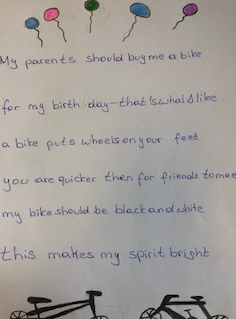 My parents should buy me a bike
for my birth day-that'swhaId like
a bike puts wheels on your feet
you are quicker then for friends to mee
my bike should be black and white
this makes my spirit bright